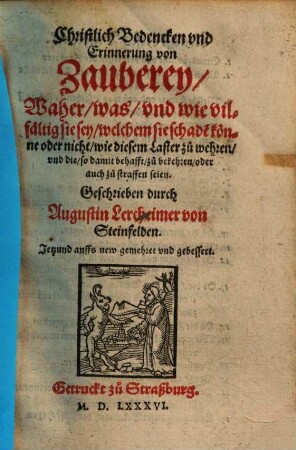 Christlich Bedencken vnd
Erinnerung von
Zauberey/
Waher/was/vnd wie vil-
fältig sie sey/welchem sie schadē kön-
ne oder nicht/wie diesem Laster zů wehren/
vnd die/so damit behafft/zů bekehren/oder
auch zů straffen seien.
Geschrieben durch
Augustin Lercheimer von
Steinfelden.
Jetzund auffs new gemehret vnd gebessert.
Getruckt zů Straßburg.
M. D. LXXXVI.